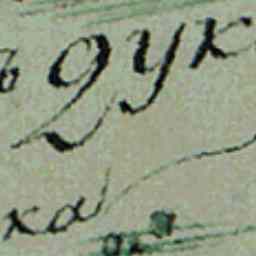 ъ дук
ка